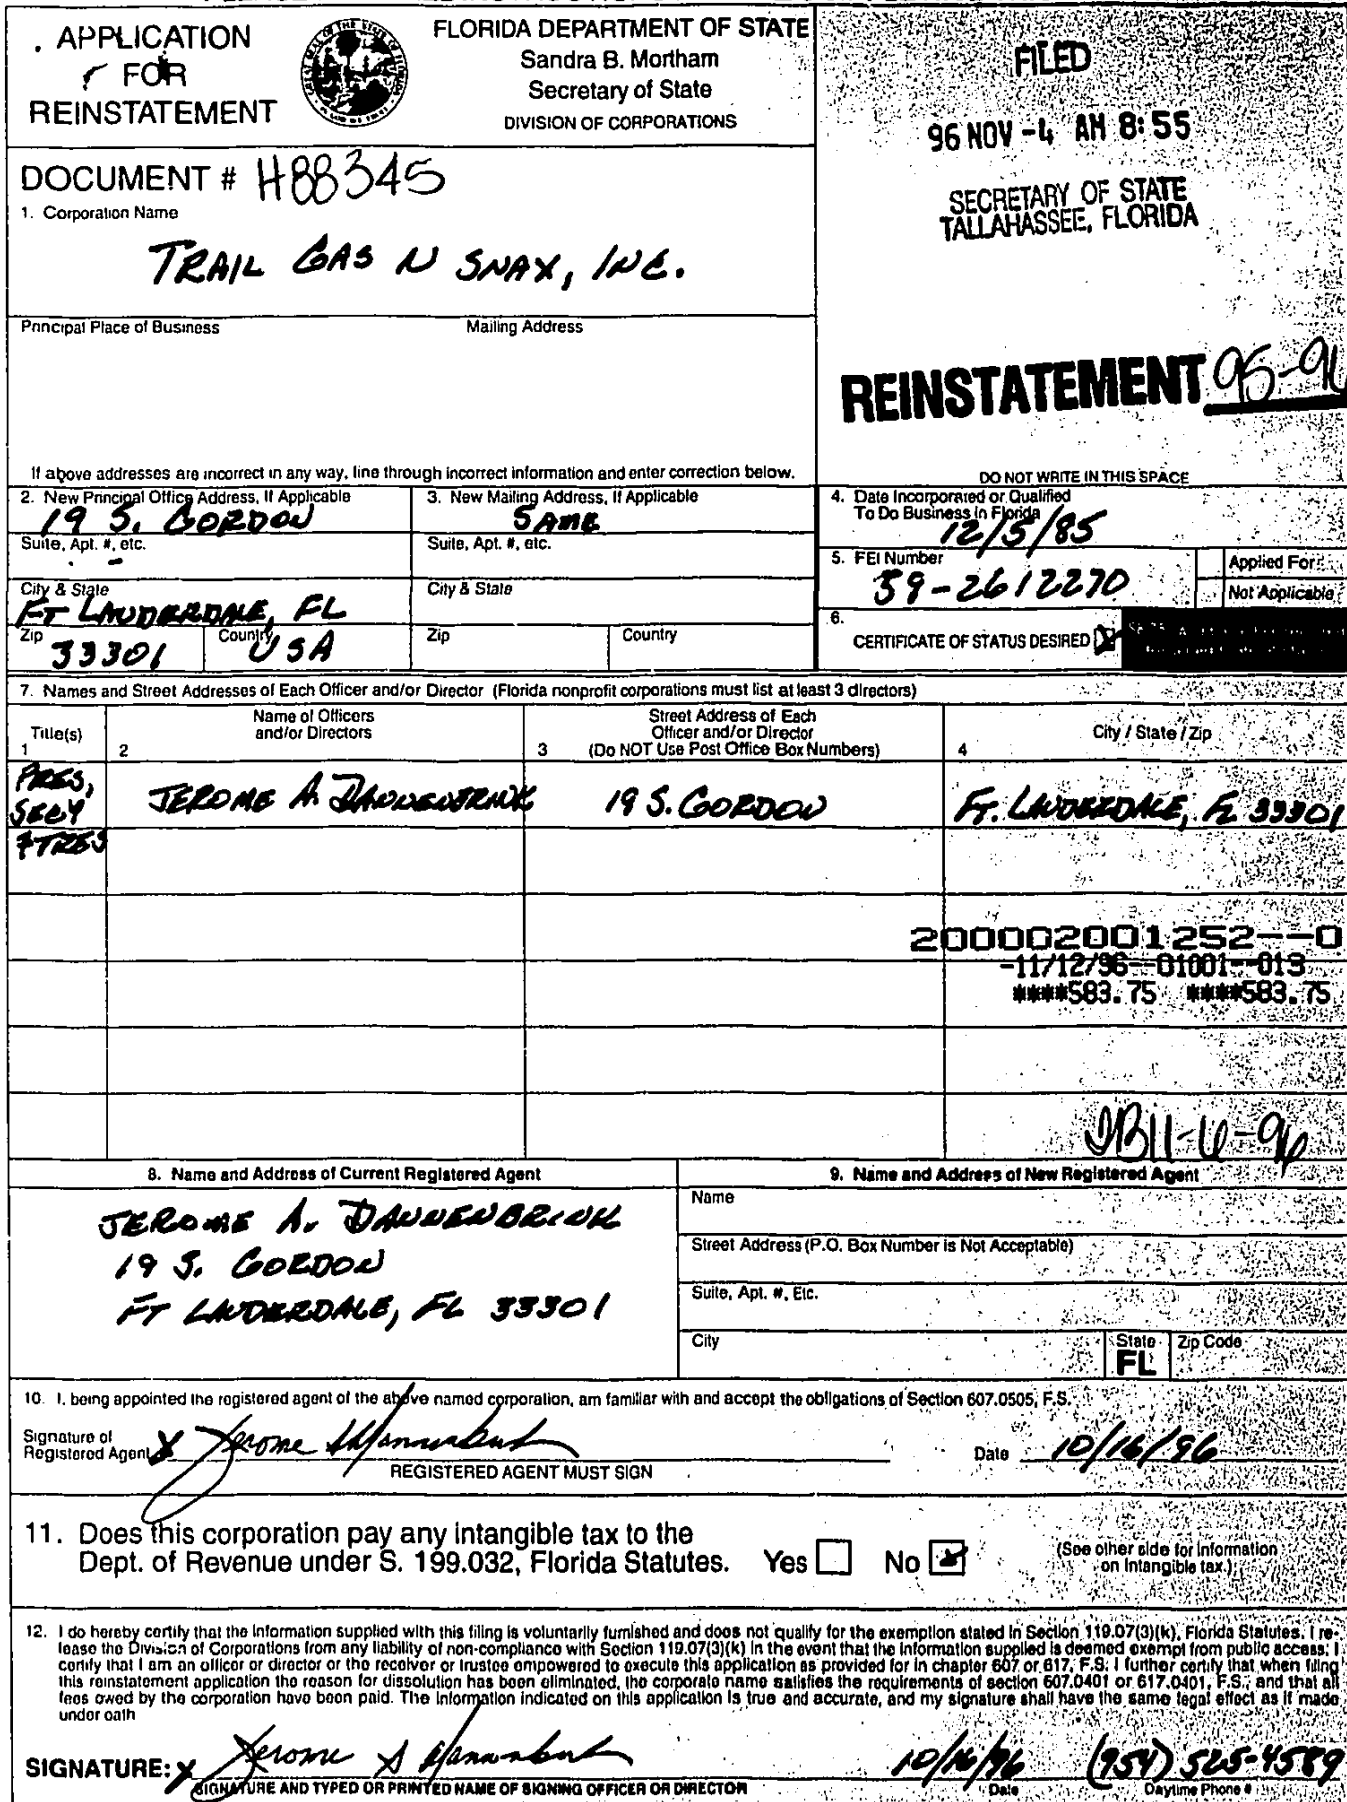 . APPLICATION
FOR
REINSTATEMENT
FLORIDA DEPARTMENT OF STATE
Sandra B. Mortham
Secretary of State
DIVISION OF CORPORATIONS
FILED
96 NOV -4 AM 8:55
SECRETARY OF STATE
TALLAHASSEE, FLORIDA
DOCUMENT # H88345
1. Corporation Name
TRAIL GAS N SNAX, INC.
Principal Place of Business
Mailing Address
REINSTATEMENT 95-96
If above addresses are incorrect in any way, line through incorrect information and enter correction below.
DO NOT WRITE IN THIS SPACE
2. New Principal Office Address, If Applicable
19 S. GORDON
3. New Mailing Address, If Applicable
SAME
4. Date Incorporated or Qualified
To Do Business in Florida
12/5/85
Suite, Apt. #, etc.
-
Suite, Apt. #, etc.
5. FEI Number
59-2612270
Applied For
Not Applicable
City & State
FT LAUDERDALE, FL
City & State
6.
CERTIFICATE OF STATUS DESIRED
Zip
33301
Country
USA
Zip
Country
7. Names and Street Addresses of Each Officer and/or Director (Florida nonprofit corporations must list at least 3 directors)
Title(s)
1
Name of Officers
and/or Directors
2
Street Address of Each
Officer and/or Director
3 (Do NOT Use Post Office Box Numbers)
City / State / Zip
4
PRES,
SECY
&TRES
JEROME A. DANNENBRINK
19 S. GORDON
FT. LAUDERDALE, FL 33301
200002001252--0
-11/12/96--01001--013
****583.75 ****583.75
JB11-6-96
8. Name and Address of Current Registered Agent
JEROME A. DANNENBRINK
19 S. GORDON
FT LAUDERDALE, FL 33301
9. Name and Address of New Registered Agent
Name
Street Address (P.O. Box Number is Not Acceptable)
Suite, Apt. #, Etc.
City
State
FL
Zip Code
10. I, being appointed the registered agent of the above named corporation, am familiar with and accept the obligations of Section 607.0505, F.S.
Signature of
Registered Agent X Jerome A Dannenbrink
REGISTERED AGENT MUST SIGN
Date 10/16/96
11. Does this corporation pay any intangible tax to the
Dept. of Revenue under S. 199.032, Florida Statutes. Yes No
(See other side for information
on intangible tax.)
12. I do hereby certify that the information supplied with this filing is voluntarily furnished and does not qualify for the exemption stated in Section 119.07(3)(k), Florida Statutes. I re-
lease the Division of Corporations from any liability of non-compliance with Section 119.07(3)(k) in the event that the information supplied is deemed exempt from public access. I
certify that I am an officer or director or the receiver or trustee empowered to execute this application as provided for in chapter 607 or 617, F.S. I further certify that when filing
this reinstatement application the reason for dissolution has been eliminated, the corporate name satisfies the requirements of section 607.0401 or 617.0401, F.S., and that all
fees owed by the corporation have been paid. The information indicated on this application is true and accurate, and my signature shall have the same legal effect as if made
under oath
SIGNATURE: X Jerome A Dannenbrink
SIGNATURE AND TYPED OR PRINTED NAME OF SIGNING OFFICER OR DIRECTOR
10/16/96
Date
(954) 525-4589
Daytime Phone #